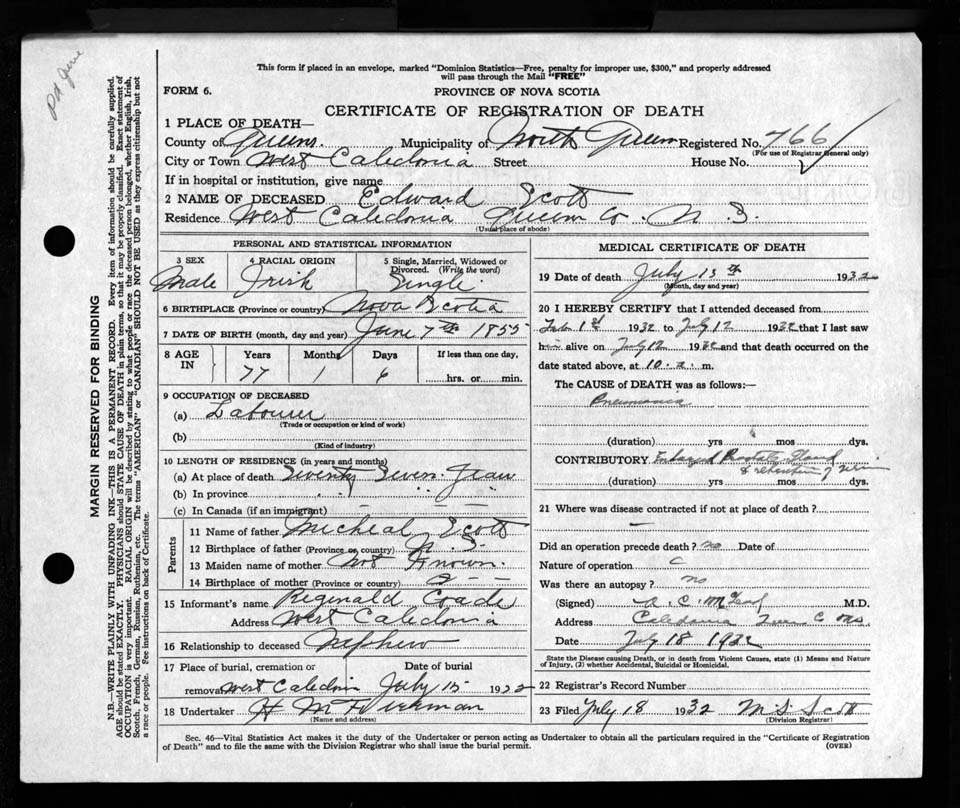 This form if placed in an envelope, marked "Dominion Statistics—Free, penalty for improper use, $300," and properly addressed
will pass through the Mail "FREE"
FORM 6.
PROVINCE OF NOVA SCOTIA
CERTIFICATE OF REGISTRATION OF DEATH
1 PLACE OF DEATH—
County of Queens. Municipality of North Queens Registered No. 766
(For use of Registrar General only)
City or Town West Caledonia Street House No.
If in hospital or institution, give name
2 NAME OF DECEASED Edward Scott
Residence West Caledonia Queens Co. N. S.
(Usual place of abode)
PERSONAL AND STATISTICAL INFORMATION
3 SEX 4 RACIAL ORIGIN 5 Single, Married, Widowed or
Divorced. (Write the word)
Male Irish Single
6 BIRTHPLACE (Province or country) Nova Scotia
7 DATE OF BIRTH (month, day and year) June 7th 1855
8 AGE IN Years Months Days If less than one day,
77 1 6 hrs. or min.
9 OCCUPATION OF DECEASED
(a) Labourer
(Trade or occupation or kind of work)
(b)
(Kind of industry)
10 LENGTH OF RESIDENCE (in years and months)
(a) At place of death Seventy Seven Years
(b) In province " " "
(c) In Canada (if an immigrant) - - -
Parents
11 Name of father Micheal Scott
12 Birthplace of father (Province or country) N. S.
13 Maiden name of mother Not Known.
14 Birthplace of mother (Province or country)
15 Informant's name Reginald
Address West Caledonia
16 Relationship to deceased Nephew
17 Place of burial, cremation or Date of burial
removal West Caledonia July 15 1932
18 Undertaker H M
(Name and address)
MEDICAL CERTIFICATE OF DEATH
19 Date of death July 13th 1932
(Month, day and year)
20 I HEREBY CERTIFY that I attended deceased from
1932 to July 12 1932 that I last saw
him alive on July 12 1932 and that death occurred on the
date stated above, at 10 . m.
The CAUSE of DEATH was as follows:—
Pneumonia
(duration) yrs mos dys.
CONTRIBUTORY Enlarged Prostate Gland
& retention of urine
(duration) yrs. mos. dys.
21 Where was disease contracted if not at place of death?
—
Did an operation precede death? no Date of
Nature of operation
Was there an autopsy? no
(Signed) A. C. M.D.
Address Caledonia
Date July 18 1932
State the Disease causing Death, or in death from Violent Causes, state (1) Means and Nature
of Injury, (2) whether Accidental, Suicidal or Homicidal.
22 Registrar's Record Number
23 Filed July 18 1932 M. S. Scott
(Division Registrar)
Sec. 46—Vital Statistics Act makes it the duty of the Undertaker or person acting as Undertaker to obtain all the particulars required in the "Certificate of Registration
of Death" and to file the same with the Division Registrar who shall issue the burial permit.
(OVER)
MARGIN RESERVED FOR BINDING
N.B.—WRITE PLAINLY WITH UNFADING INK—THIS IS A PERMANENT RECORD. Every item of information should be carefully supplied.
AGE should be stated EXACTLY. PHYSICIANS should STATE CAUSE OF DEATH in plain terms, so that it may be properly classified. Exact statement of
OCCUPATION is very important. RACIAL ORIGIN will be described by stating to what people or race the deceased person belonged, whether English, Irish,
Scotch, French, German, Russian, Ruthenian, etc. The terms "AMERICAN" or "CANADIAN" SHOULD NOT BE USED as they express citizenship but not
a race or people. See instructions on back of Certificate.